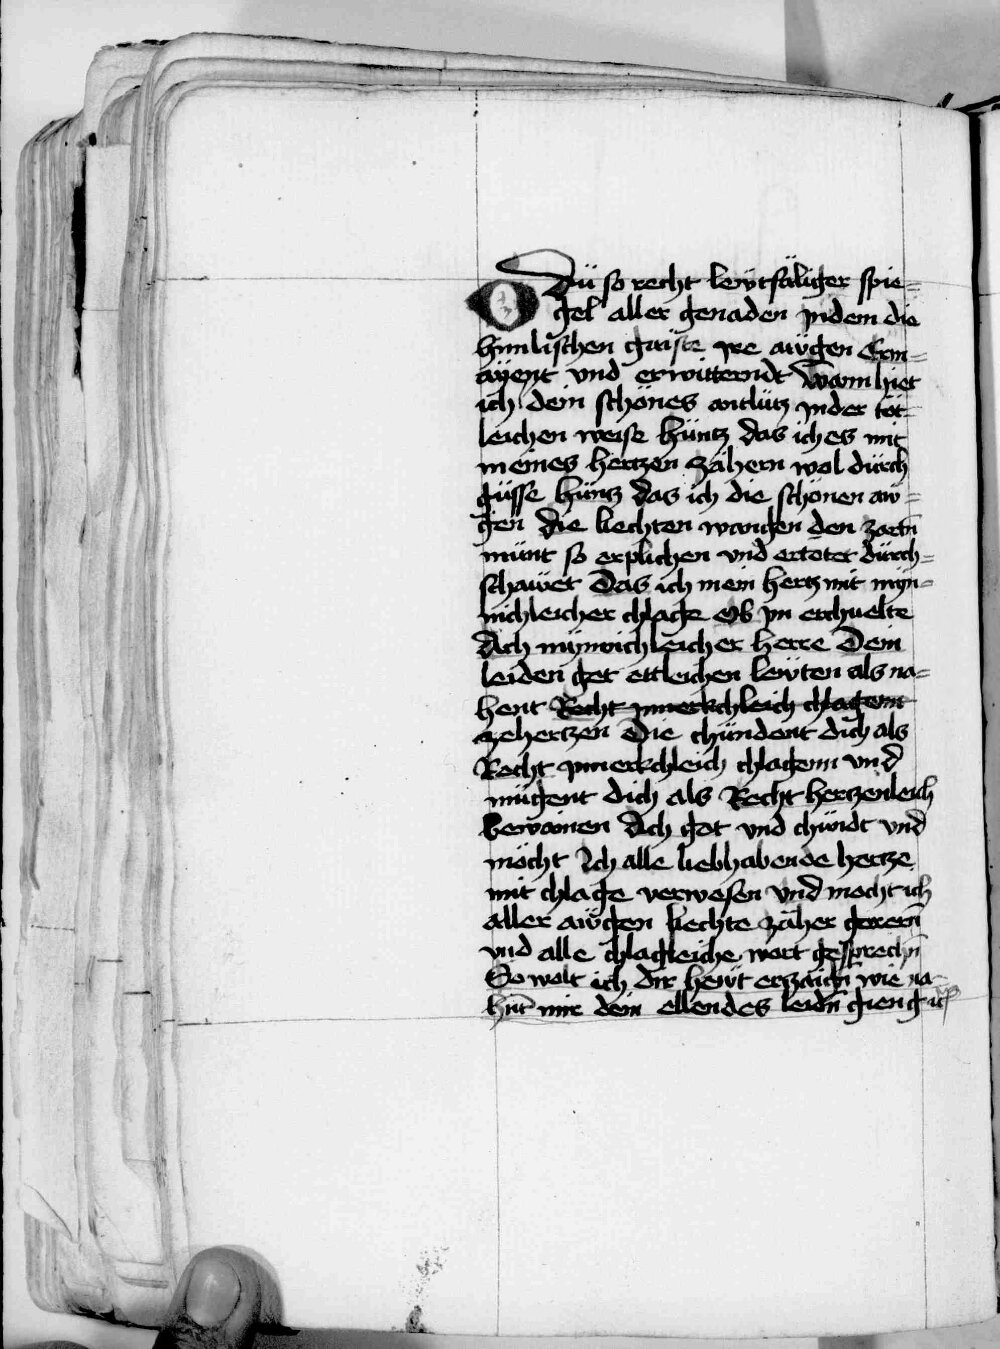 O Dü so recht leẅtsäliger spie=
gel aller genaden jndem die
himlischen gaiste jre aẅgen Erm=
ayent vnd erwitterndt Wann hiet
ich dein schönes antlütz jnder töt=
leichen weise hüntz das ich es mit
meines hertzen zähern wol dürch
güsse hüntz das ich die schönen aw=
gen die liechten wangen den zartn̄
münt so erplichen vnd ertötet dürch=
schaẅet Das ich mein hertz mit mÿn=
nichleicher chlage ob jm erchuelte
Ach mÿnnichleicher herre Dein
leiden get ettleichen leẅten als na=
hent Recht jnnerkchleich chlagent
zehertzen Die chündent dich als
Recht jnnerkchleich chlagenn vnd
mügent dich als Recht hertzenleich
bewainen Ach got vnd chündt vnd
möcht Ich alle liebhabende hertze
mit chlage verwesen vnd mocht ich
aller aẅgen liechte zäher gerern̄
vnd alle chlagleiche wort gesprechn̄
So wolt ich dir heẅt erzaign̄ wie na=
hnt mir dein ellendes leidn̄ gieng